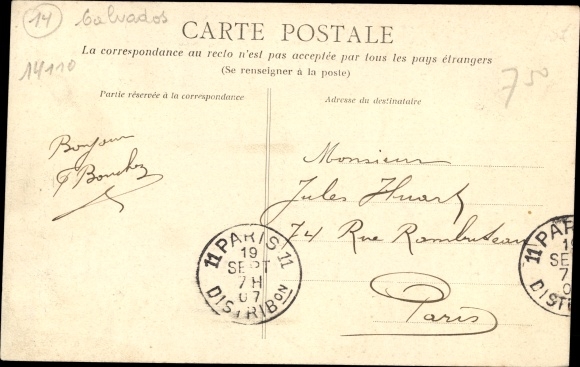 14 Calvados
14110
CARTE POSTALE
La correspondance au recto n'est pas acceptée par tous les pays étrangers
(Se renseigner à la poste)
7 50
Partie réservée à la correspondance
Adresse du destinataire
Bonjour
F Bouchez
Monsieur
Jules Huart
74 Rue Rambuteau
Paris
11 PARIS 11
19
SEPT
7H
07
DISTRIBON
11 PAR
19
SE
7
0
DIST